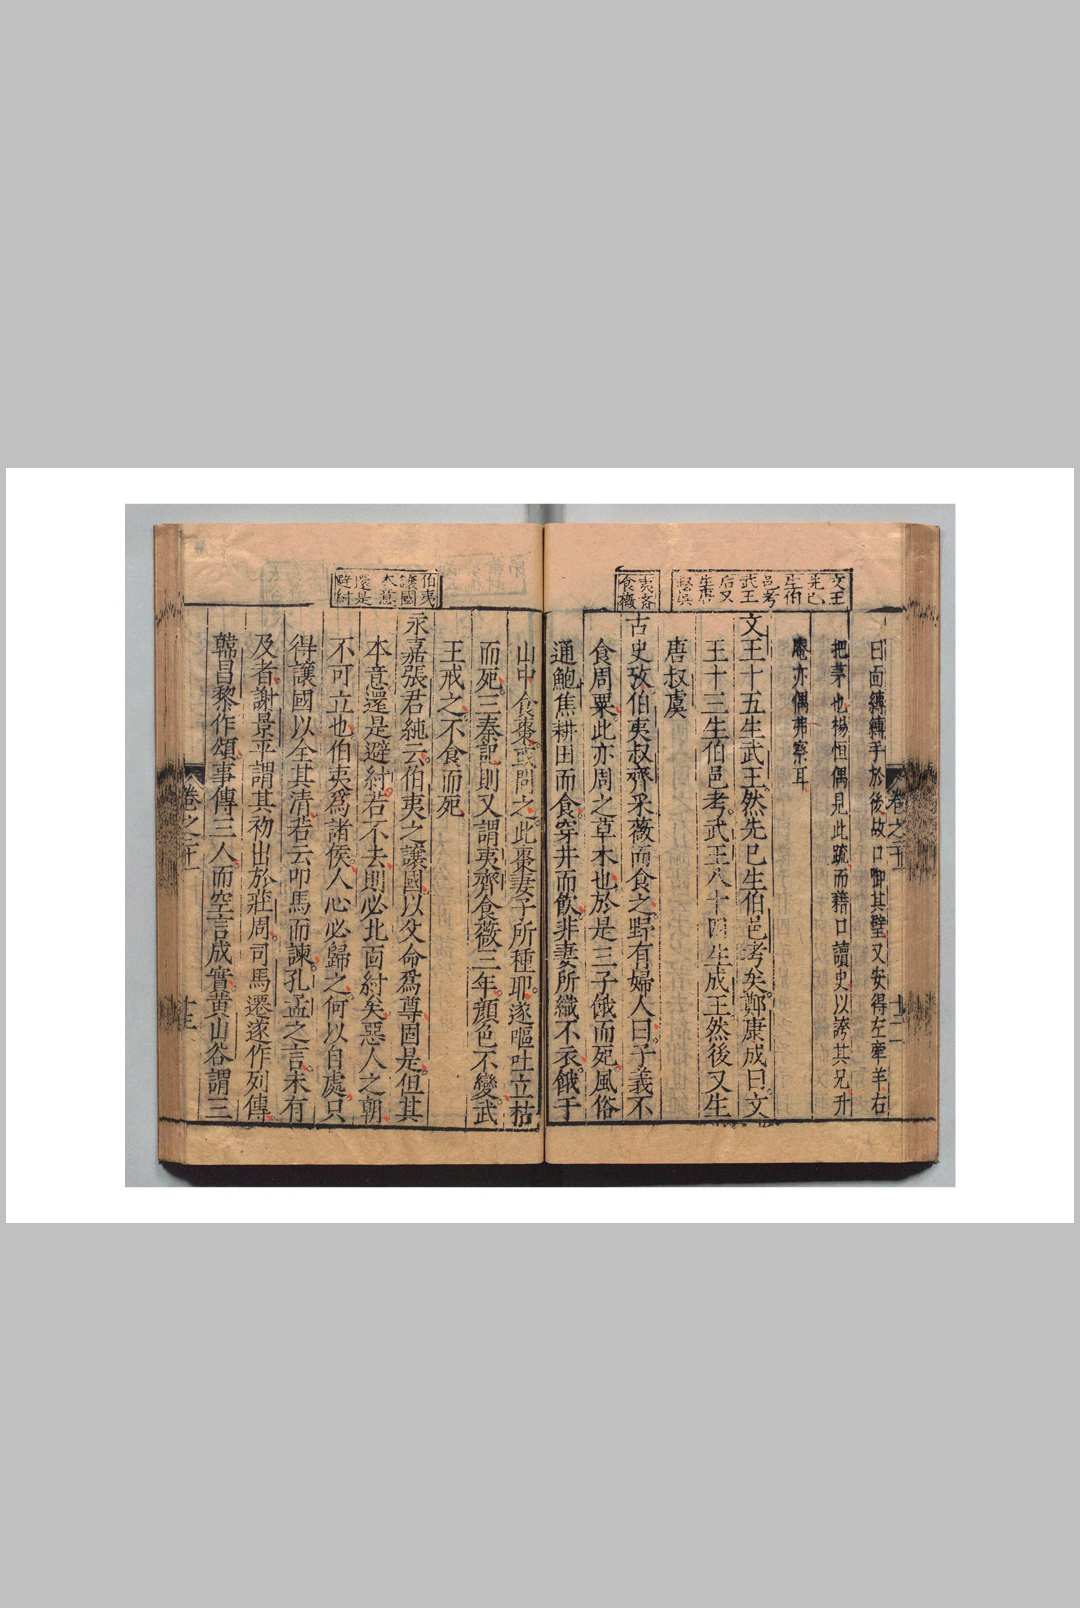 文王
先已
生伯
邑考
武王
后又
生唐
夷齊
食薇
曰面縛縛手於後故口啣其璧又安得左牽羊右
把茅也楊恒偶見此疏而藉口讀史以誇其兄升
菴亦偶弗察耳
文王十五生武王然先已生伯邑考矣鄭康成曰文
王十三生伯邑考武王八十四生成王然後又生
唐叔虞
古史攷伯夷叔齊采薇而食之野有婦人曰子義不
食周粟此亦周之草木也於是三子餓而死風俗
通鮑焦耕田而食穿井而飲非妻所織不衣餓于
山中食棗或問之此棗妻子所種耶遂嘔吐立枯
而死三秦記則又謂夷齊食薇三年顔色不變武
王戒之不食而死
伯夷
讓國
本意
還是
避紂
永嘉張君純云伯夷之讓國以父命爲尊固是但其
本意還是避紂若不去則必北面紂矣惡人之朝
不可立也伯夷爲諸侯人心必歸之何以自處只
得讓國以全其清若云叩馬而諫孔孟之言未有
及者謝景平謂其初出於莊周司馬遷遂作列傳
韓昌黎作頌事傳三人而空言成實黃山谷謂三
卷之十一
十二
卷之十一
十三